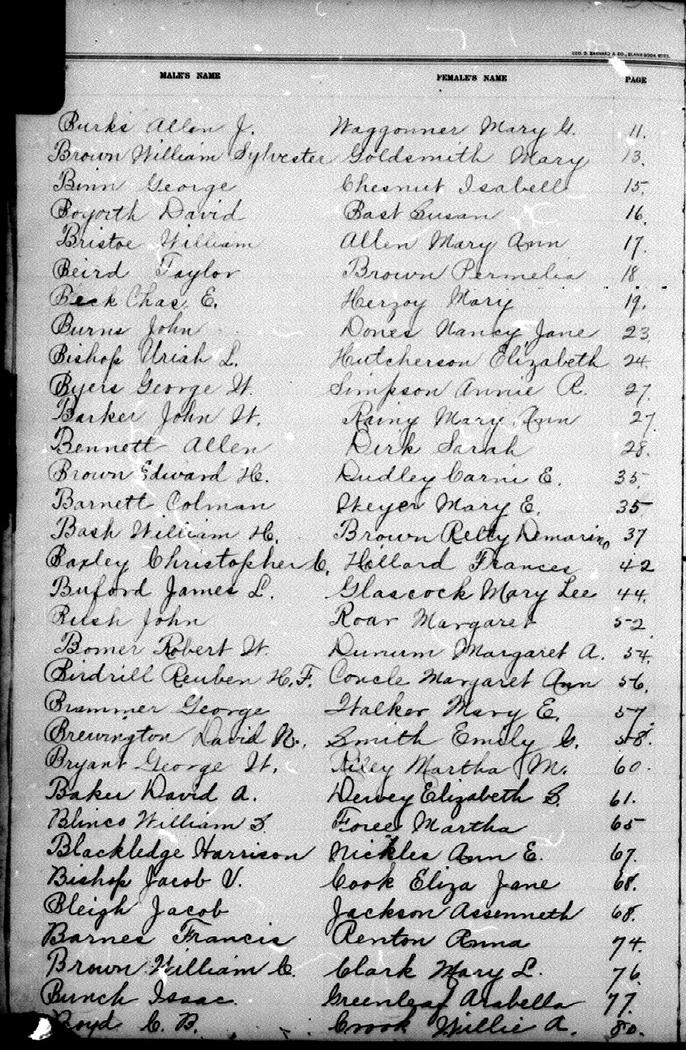 GEO. D. BARNARD & CO., BLANK BOOK MFRS.
MALE'S NAME FEMALE'S NAME PAGE
Burks Allen J. Waggonner Mary G. 11.
Brown William Sylvester Goldsmith Mary 13.
Binn George Chesnut Isabell 15.
Boyorth David Bast Susan 16.
Bristoe William Allen Mary Ann 17.
Beird Taylor Brown Permelia 18
Beck Chas E. Herzoy Mary 19.
Burns John Dones Nancy Jane 23.
Bishop Uriah L. Hutcherson Elizabeth 24.
Byers George W. Simpson Annie R. 27.
Barker John W. Rainy Mary Ann 27.
Bennett Allen Dirk Sarah 28.
Brown Edward H. Dudley Carni E. 35.
Barnett Colman Weyer Mary E. 35
Bash William H. Brown Relty 37
Baxley Christopher C. Hillard Frances 42
Buford James L. Glascock Mary Lee 44.
Rush John Roar Margaret 52.
Bomer Robert W. Dunum Margaret A. 54.
Birdrill Reuben H. F. Concle Margaret Ann 56.
Brammer George Walker Mary E. 57.
Brewington David N. Smith Emily G. 58.
Bryant George W. Riley Martha M. 60.
Baker David A. Dewey Elizabeth S. 61.
Blinco William S. Foree Martha 65
Blackledge Harrison Nickles Ann E. 67.
Bishop Jacob V. Cook Eliza Jane 68.
Bleigh Jacob Jackson Assenneth 68.
Barnes Francis Renton Anna 74.
Brown William C. Clark Mary L. 76.
Bunch Isaac. Greenleaf Arabella 77.
Boyd C. B. Crook Willie A. 80.